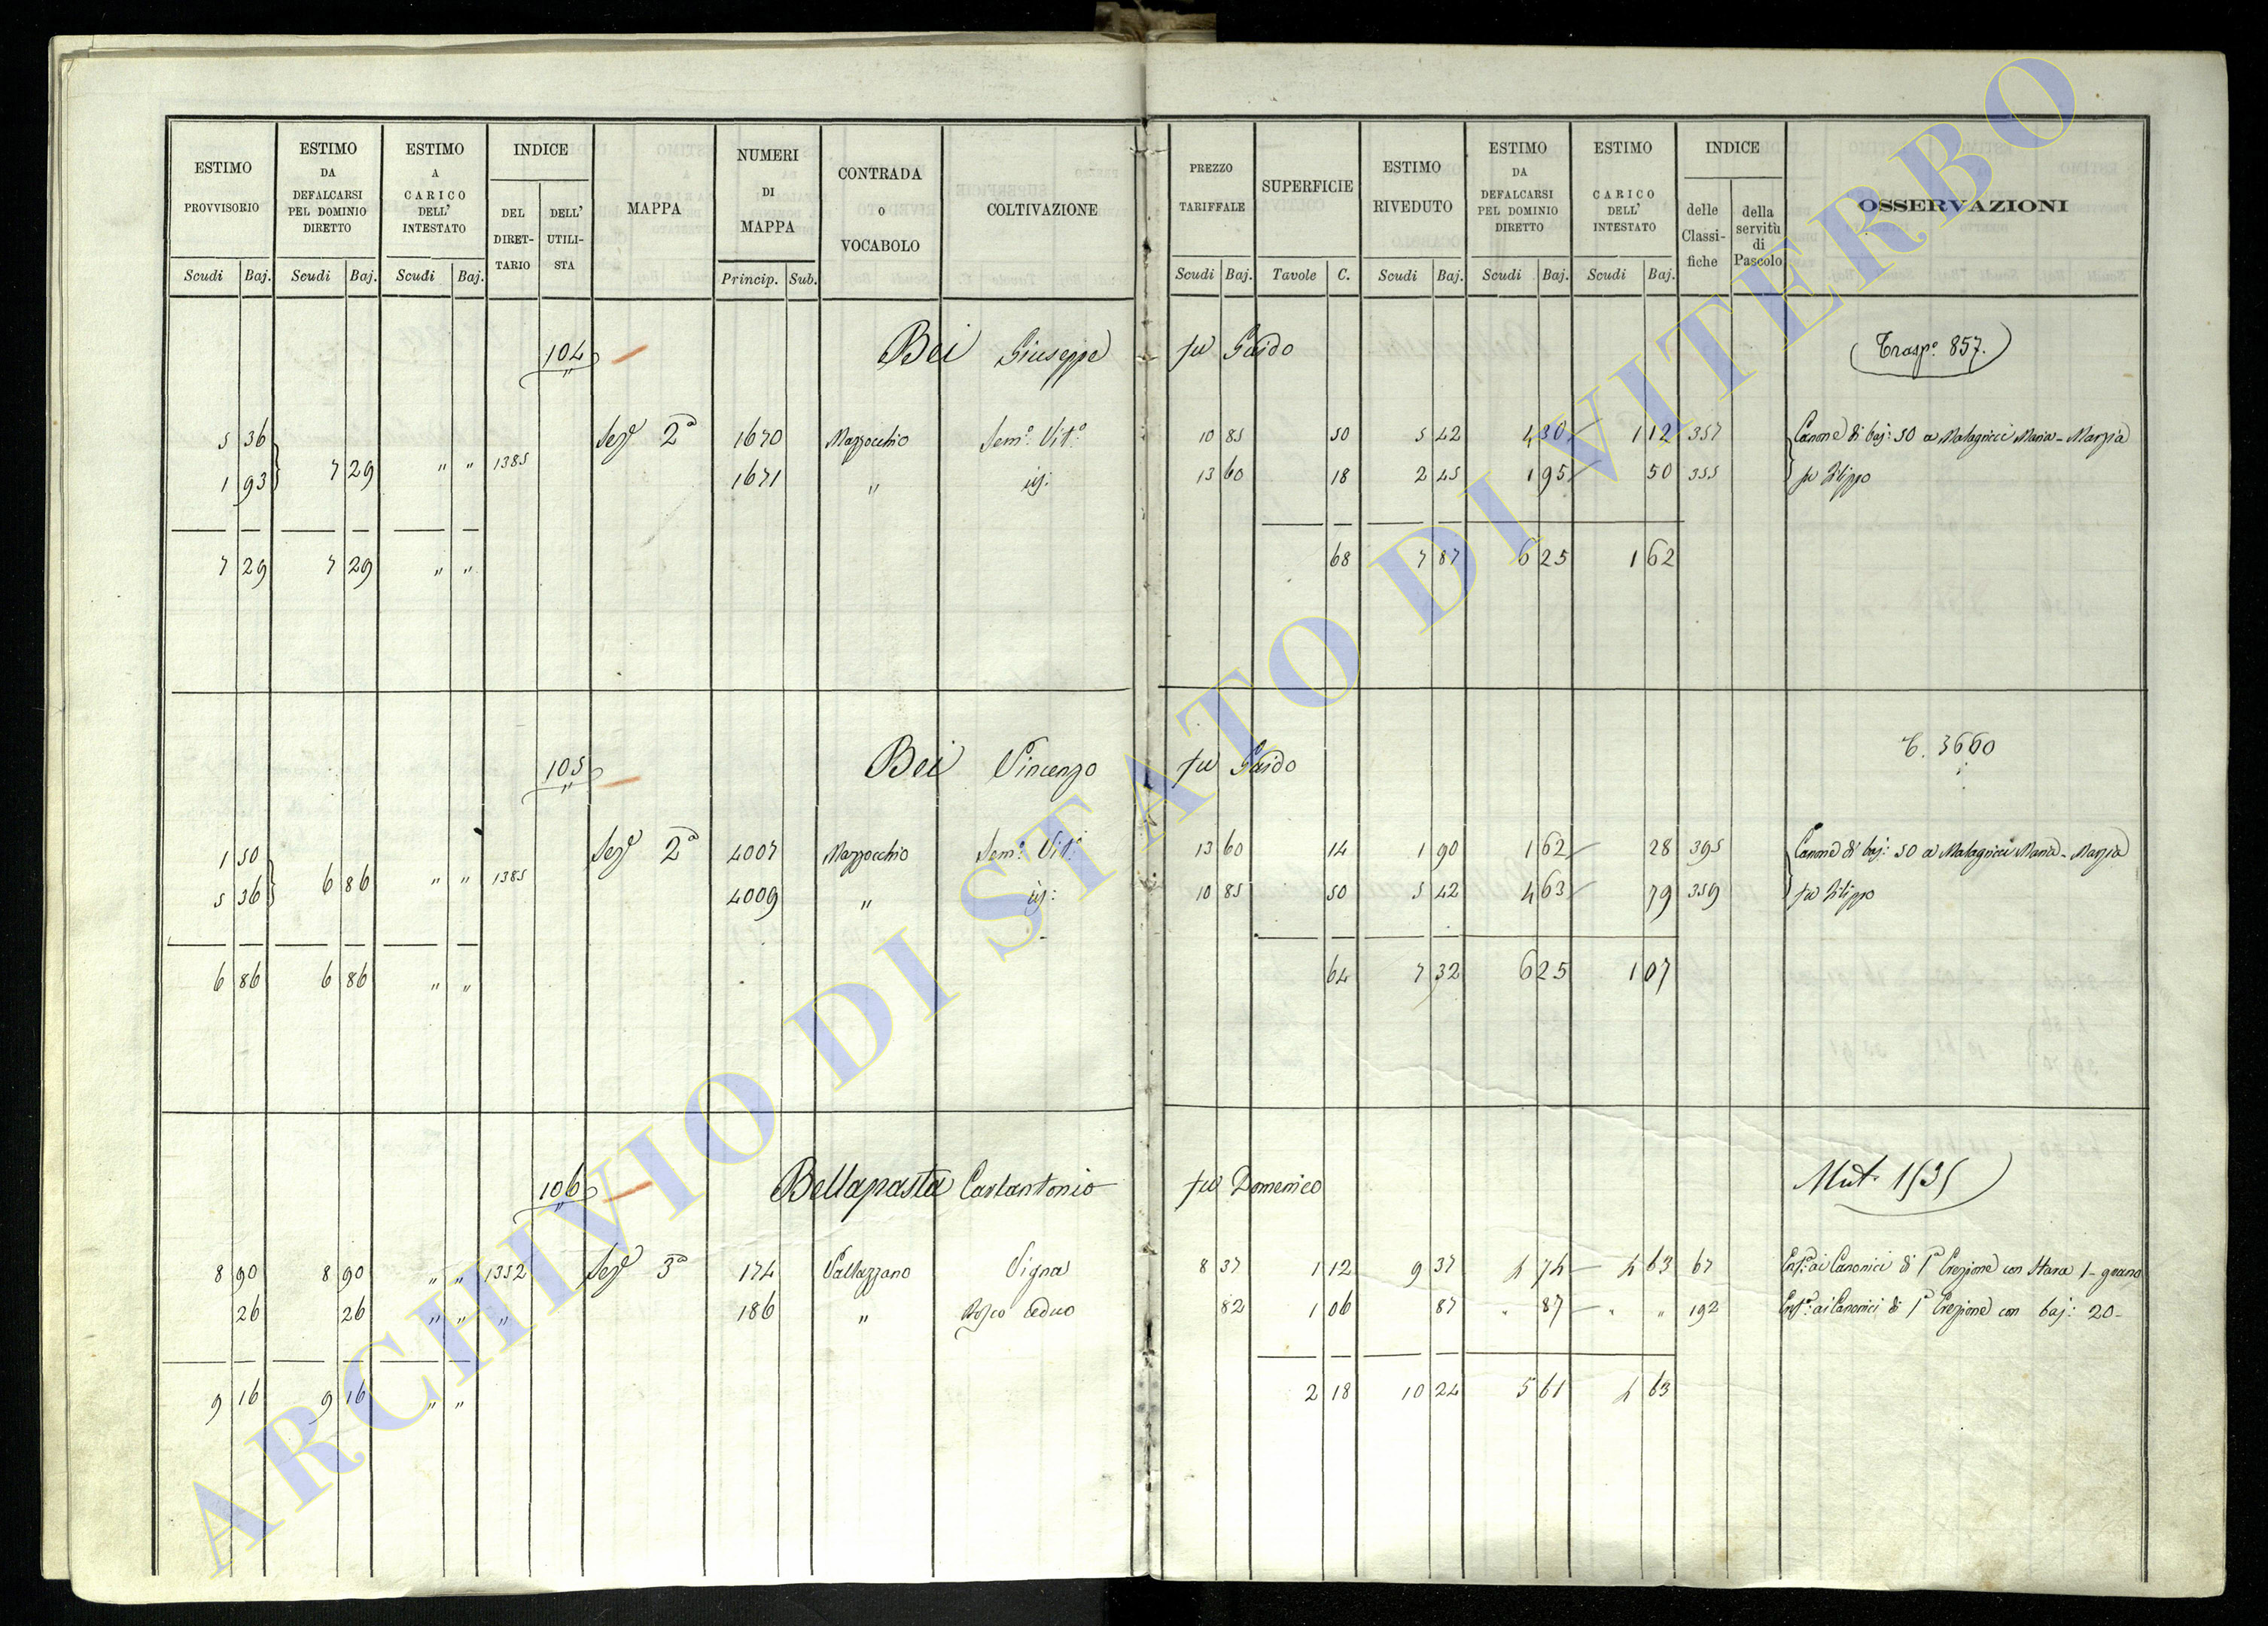 ESTIMO PROVVISORIO Scudi Baj.
ESTIMO DA DEFALCARSI PEL DOMINIO DIRETTO Scudi Baj.
ESTIMO A CARICO DELL' INTESTATO Scudi Baj.
INDICE DEL DIRET-TARIO DELL' UTILI-STA
MAPPA
NUMERI DI MAPPA Princip. Sub.
CONTRADA O VOCABOLO
COLTIVAZIONE
PREZZO TARIFFALE Scudi Baj.
SUPERFICIE Tavole C.
ESTIMO RIVEDUTO Scudi Baj.
ESTIMO DA DEFALCARSI PEL DOMINIO DIRETTO Scudi Baj.
ESTIMO CARICO DELL' INTESTATO Scudi Baj.
INDICE delle Classi-fiche della servitù di Pascolo
OSSERVAZIONI
104 Bei Giuseppe fu Guido (Trasp.o 857.)
5 36 Sez.e 2a 1670 Mazzocchio Sem.o Vit.o 10 85 50 5 42 4 30 1 12 357 Canone di baj: 50 a Malagricci Maria-Marzia
1 93 7 29 " " 1385 1671 " id: 13 60 18 2 45 1 95 50 355 fu Filippo
7 29 7 29 " " 68 7 87 6 25 1 62
105 Bei Vincenzo fu Guido T. 3660
1 50 Sez.e 2a 4007 Mazzocchio Sem.o Vit.o 13 60 14 1 90 1 62 28 395 Canone di baj: 50 a Malagricci Maria-Marzia
5 36 6 86 " " 1385 4009 " id: 10 85 50 5 42 4 63 79 359 fu Filippo
6 86 6 86 " " 64 7 32 6 25 1 07
106 Bellapasta Carlantonio fu Domenico Mut. 1535
8 90 8 90 " " 1352 Sez.e 3a 174 Vallazzano Vigna 8 37 1 12 9 37 4 74 4 63 67 Enf.a ai Canonici di 1a Erezione con Stara 1 - grano
26 26 " " " 186 " Bosco ceduo 82 1 06 87 " 87 " " 192 Enf.a ai Canonici di 1a Erezione con baj: 20-
9 16 9 16 " " 2 18 10 24 5 61 4 63
ARCHIVIO DI STATO DI VITERBO